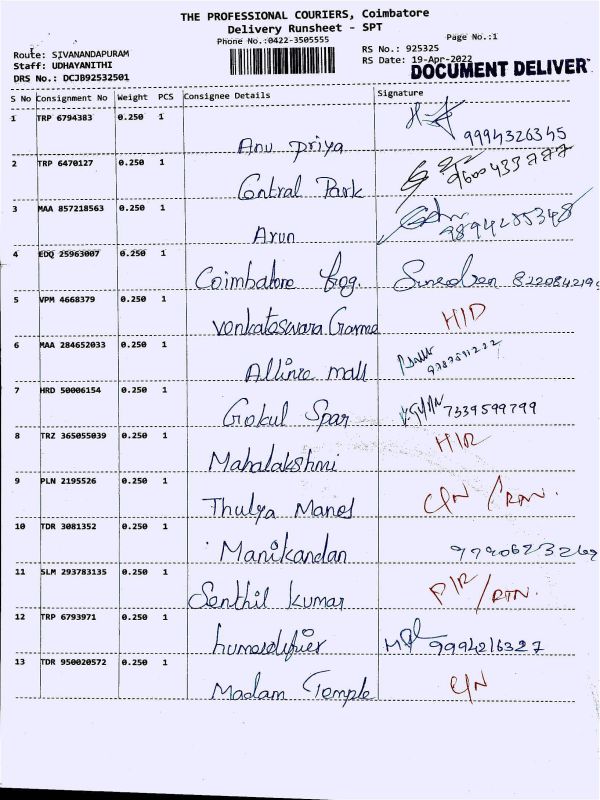 THE PROFESSIONAL COURIERS, Coimbatore
Delivery Runsheet - SPT
Phone No.:0422-3505555
Page No.:1
Route: SIVANANDAPURAM
RS No.: 925325
Staff: UDHAYANITHI
RS Date: 19-Apr-2022
DRS No.: DCJB92532501
DOCUMENT DELIVER
S No Consignment No Weight PCS Consignee Details Signature
1 TRP 6794383 0.250 1 Anu Priya 9994326345
2 TRP 6470127 0.250 1 Central Park 9600433777
3 MAA 857218563 0.250 1 Arun
4 EDQ 25963007 0.250 1 Coimbatore
5 VPM 4668379 0.250 1 Venkateswara H/D
6 MAA 284652033 0.250 1 mall
7 HRD 50006154 0.250 1 Gokul Spar 7339599799
8 TRZ 365055039 0.250 1 Mahalakshmi
9 PLN 2195526 0.250 1 Thulya C/N /RTN.
10 TDR 3081352 0.250 1 Manikandan
11 SLM 293783135 0.250 1 Senthil Kumar /RTN.
12 TRP 6793971 0.250 1 9994216327
13 TDR 950020572 0.250 1 Madam Temple C/N